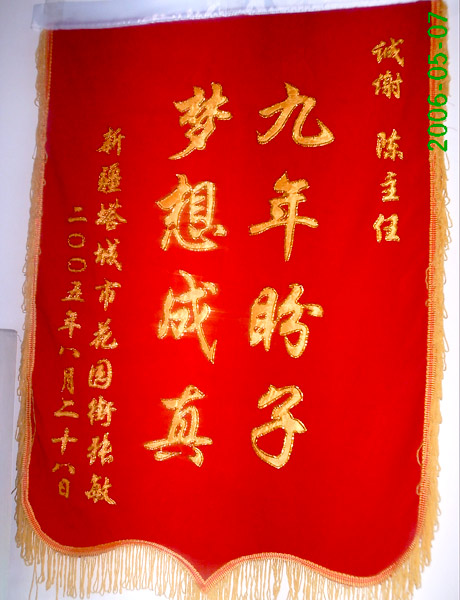 诚谢 陈主任
九年盼子
梦想成真
新疆塔城市花园街张敏
二〇〇五年八月二十八日
2006-05-07